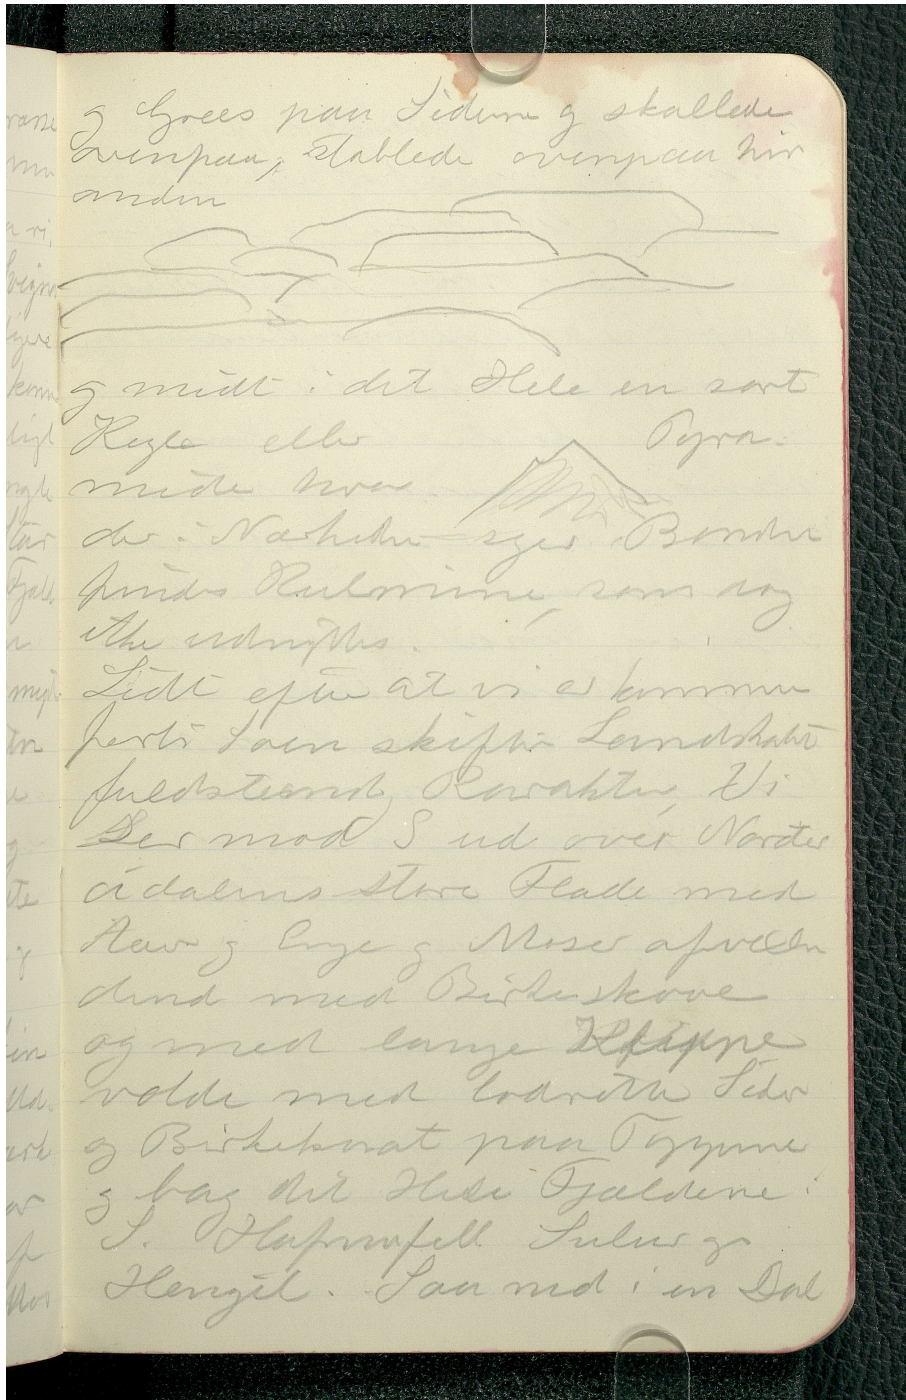 g Græs paa Siderne g skallede
ovenpaa, Stablede ovenpaa hin
anden
g midt i det Hele en sort
Kegle eller Pyra-
mide hvor
der i Nærheden siger Bonden
findes Kulmine, som dog
ikke udnyttes.
Lidt efter at vi er kommen
forbi Søen skifter Landskabet
fuldstænd. Karakter, Vi
Ser mod S ud over Norder
ádalens store Flade med
Aaer g Enge g Moser afvexlen
dend med Birkeskove
og med lange Klippe
volde med lodrette Sider
og Birkekrat paa Toppene
g bag det Hele Fjældene i
S. Hafnarfell Sulur g
Hengil. Saa ned i en Dal